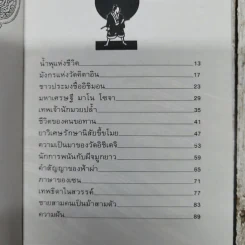 น้ำพุแห่งชีวิต 13
มังกรแห่งวัดคิตาอิน 17
ชาวประมงชื่ออิชิมอน 23
มหาเศรษฐี มาโน โชจา 29
เทพเจ้านักมวยปล้ำ 35
ชีวิตของคนขอทาน 41
ยาวิเศษรักษานิสัยขี้ขโมย 47
ความเป็นมาของวัดอิชิเดจิ 53
นักการพนันกับผีจมูกยาว 59
คำสัญญาของฟ้าผ่า 65
ภาษาของแซน 71
เทพธิดาในสวรรค์ 77
ชายสามคนเป็นม้าสามตัว 83
ความฝัน 89